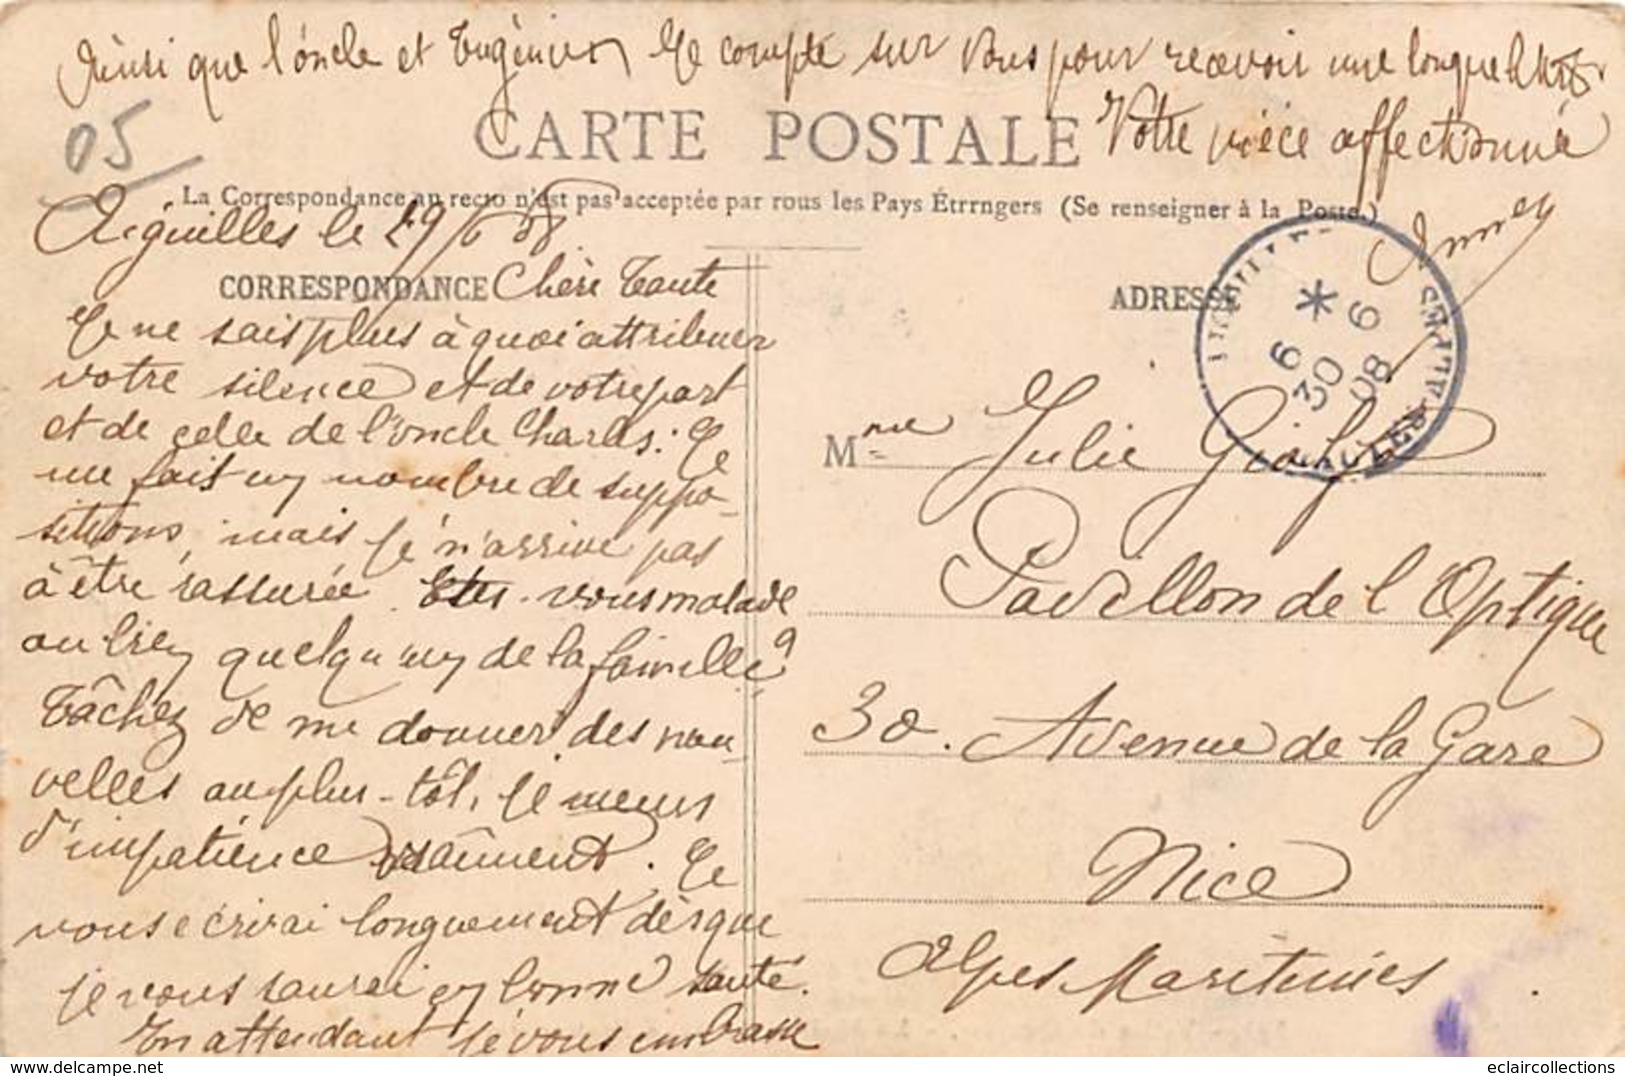 Ainsi que l'oncle et Eugénie. Je compte sur vous pour recevoir une longue lettre.
Votre nièce affectionnée
05
CARTE POSTALE
La Correspondance au recto n'est pas acceptée par tous les Pays Étrrngers (Se renseigner à la Poste.)
Aiguilles le 29/6 08
CORRESPONDANCE
Chère Tante
Je ne sais plus à quoi attribuer
votre silence et de votre part
et de celle de l'oncle Charles. Je
me fait un nombre de suppo-
sitions, mais je n'arrive pas
à être rassurée. Etes-vous malade
ou bien quelqu'un de la famille?
Tâchez de me donner des nou-
velles au plus-tôt, je meurs
d'impatience vraiment. Je
vous écrirai longuement dès que
je vous saurai en bonne santé.
En attendant je vous embrasse
ADRESSE
6 *
30 6
08
HAUTES ALPES
Mme Julie
Pavillon de l'Optique
30. Avenue de la Gare
Nice
Alpes Maritimes.
eclaircollections